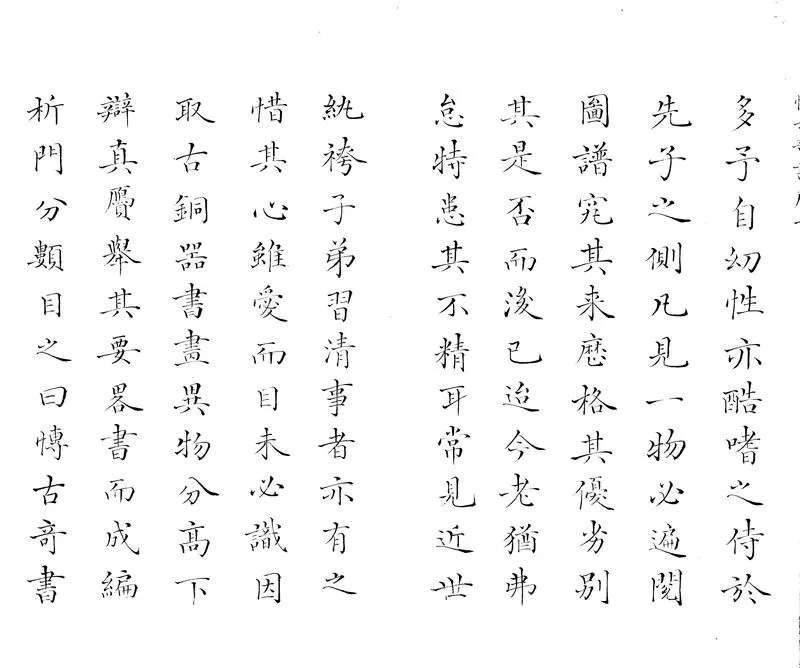 多予自幼性亦酷嗜之侍於
先子之側凡見一物必遍閱
圖譜究其来歷格其優劣别
其是否而後已迨今老猶弗
怠特患其不精耳常見近世
紈袴子弟習清事者亦有之
惜其心雖愛而目未必識因
取古銅器書畫異物分高下
辯真贋舉其要畧書而成編
析門分類目之曰愽古竒書